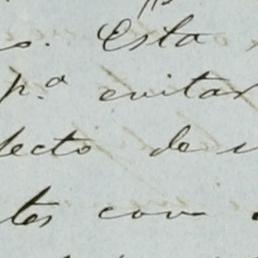 s. Esta
p.ª evitar
fecto de
tes con